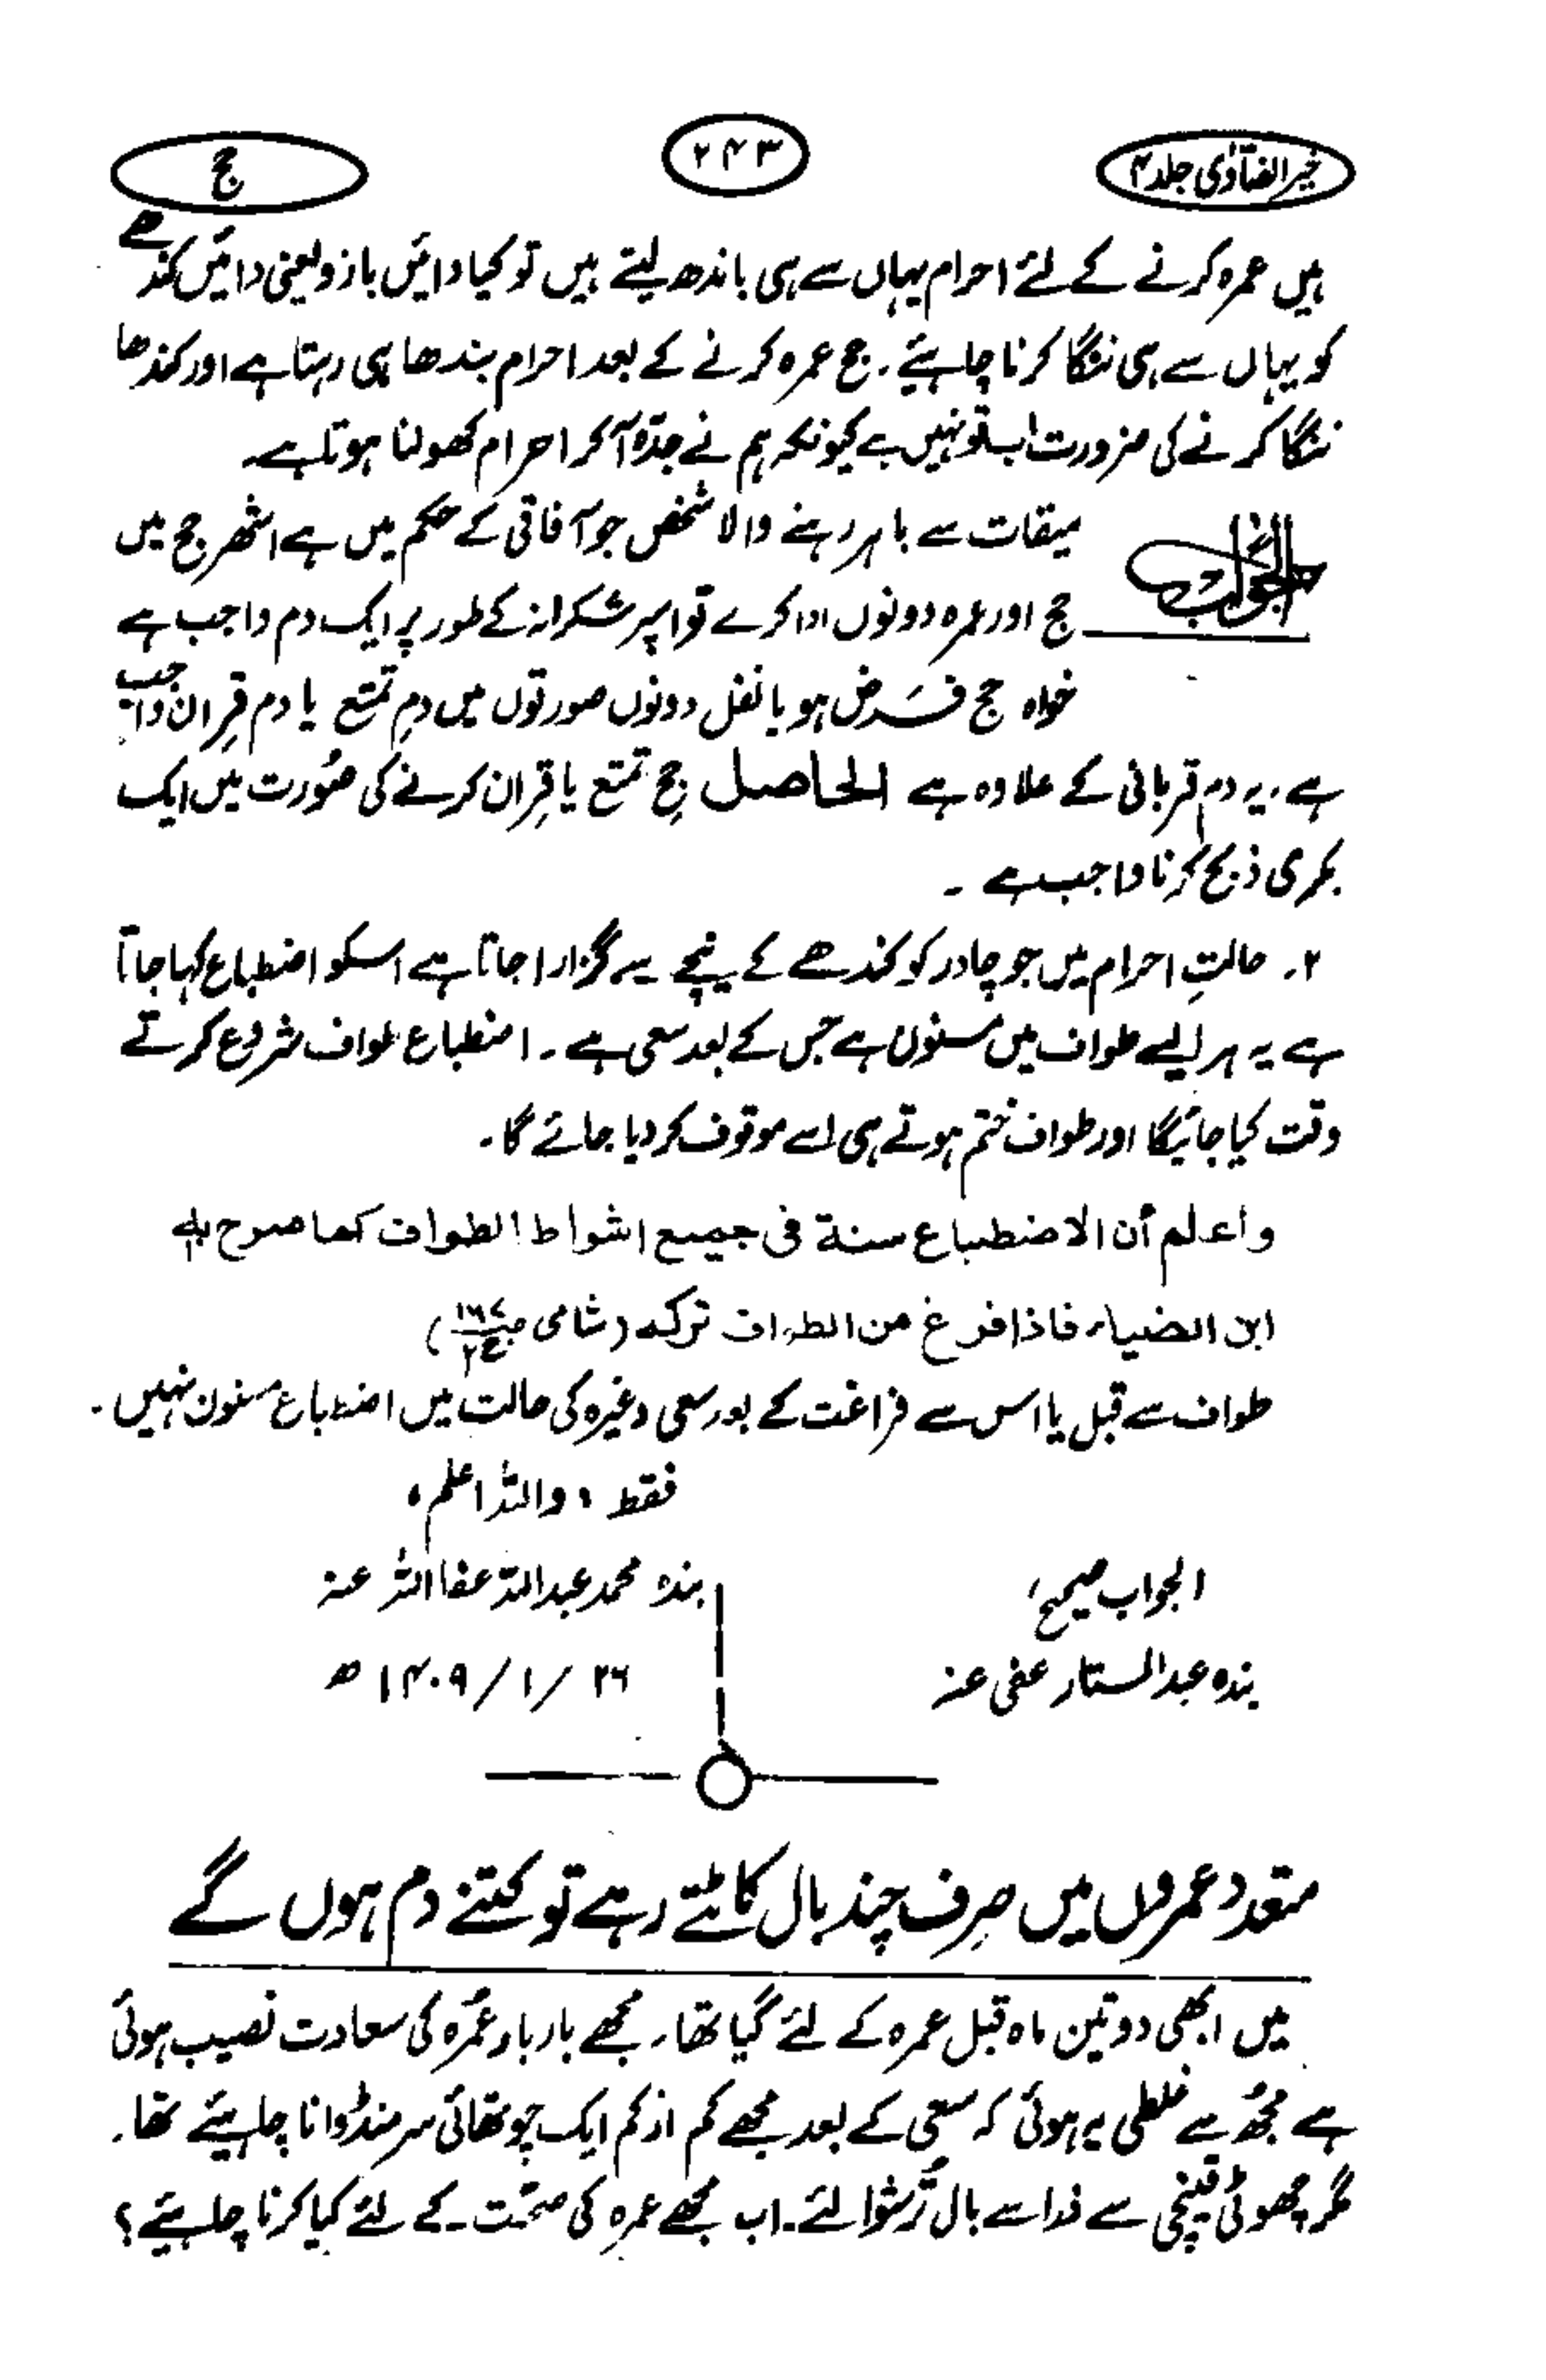 خیر الفتاوٰی جلد ۴
۲۴۳
حج
ہیں عمرہ کرنے کے لئے احرام یہاں سے ہی باندھ لیتے ہیں تو کیا دائیں بازو یعنی دائیں کندھے
کو یہاں سے ہی ننگا کرنا چاہیئے۔ حج عمرہ کرنے کے بعد احرام بندھا ہی رہتا ہے اور کندھا
ننگا کرنے کی ضرورت اب تو نہیں ہے کیونکہ ہم نے جدّہ آکر احرام کھولنا ہوتا ہے۔
الجواب
میقات سے باہر رہنے والا شخص جو آفاقی کے حکم میں ہے اشھر حج میں
حج اور عمرہ دونوں ادا کرے تو اسپر شکرانہ کے طور پر ایک دم واجب ہے
خواہ حج فرض ہو یا نفل دونوں صورتوں میں دمِ تمتع یا دم قِران واجب
ہے، یہ دم قربانی کے علاوہ ہے الحاصل حجِ تمتع یا قِران کرنے کی صُورت میں ایک
بکری ذبح کرنا واجب ہے ۔
۲۔ حالتِ احرام میں جو چادر کو کندھے کے نیچے سے گزارا جاتا ہے اسکو اضطباع کہا جاتا
ہے یہ ہر ایسے طواف میں مسنون ہے جس کے بعد سعی ہے ۔ اضطباع طواف شروع کرتے
وقت کیا جائیگا اور طواف ختم ہوتے ہی اسے موقوف کر دیا جائے گا۔
واعلم أن الاضطباع سنة فی جمیع اشواط الطواف کما صرح به
ابن الضیاء فاذا فرغ من الطواف ترکه (شامی ص۱۶۷ ج۲)
طواف سے قبل یا اس سے فراغت کے بعد سعی وغیرہ کی حالت میں اضطباع مسنون نہیں۔
فقط ، واللہ اعلم ،
الجواب صحیح،
بندہ محمد عبداللہ عفا اللہ عنہ
بندہ عبدالستار عفی عنہ
۲۶ / ۱ / ۱۴۰۹ ھ
متعدد عمروں میں صِرف چند بال کاٹتے رہے تو کتنے دم ہوں گے
میں ابھی دو تین ماہ قبل عمرہ کے لئے گیا تھا۔ مجھے بار بار عُمرہ کی سعادت نصیب ہوئی
ہے مجھُ سے غلطی یہ ہوئی کہ سعی کے بعد مجھے کم از کم ایک چوتھائی سر منڈوانا چاہیئے تھا۔
مگر چھوٹی قینچی سے ذرا سے بال تُرشوا لئے۔ اب مجھے عمرہ کی صحّت کے لئے کیا کرنا چاہیئے؟